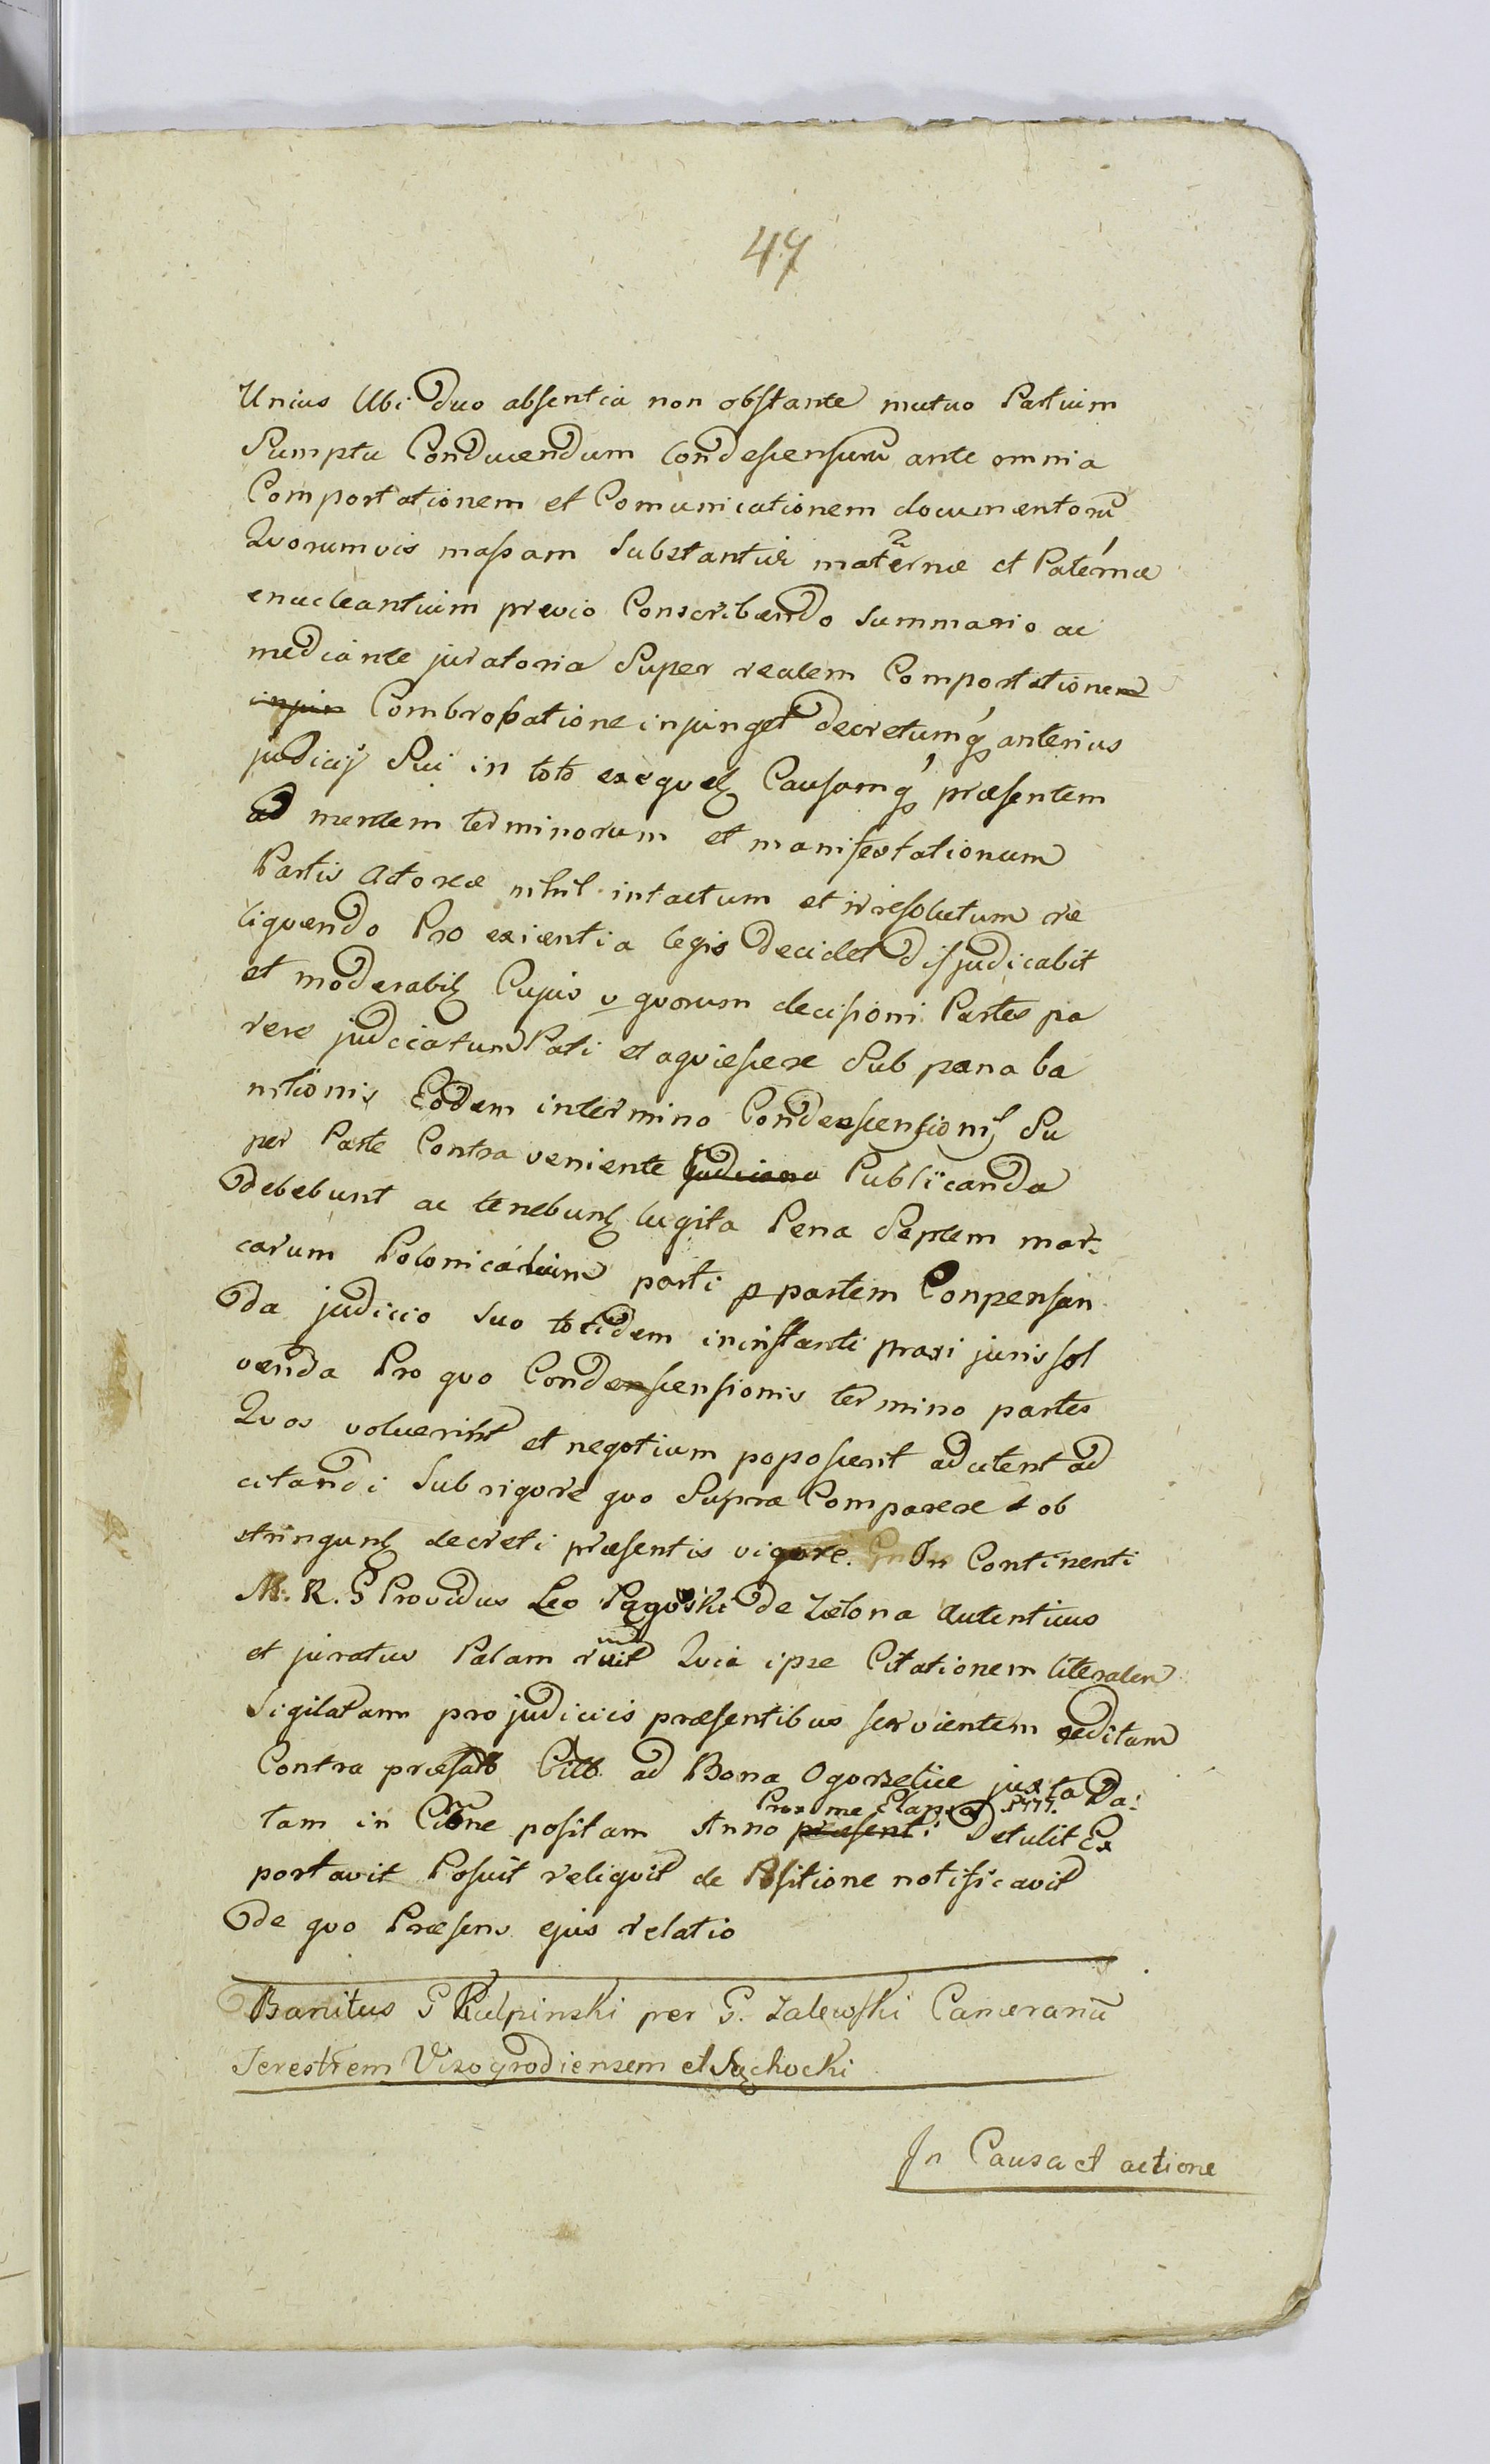 47
Unius Ubi Duo absentia non obstante mutuo Partium
Sumptu Conducendum Condescensurũ ante omnia
Comportationem et Comunicationem documentorũ
Quorumvis massam Substantiæ maternæ et Paternæ
enucleantium previo Conscribendo Summario ac
mediante juratoria Super realem Comportationem
injun Combrobatione injunget Decretumq anterius
judicij Sui in toto exequetz Causamq præsentem
ad mentem terminorum et manifestationum
Partis Actoreæ nihil intactum et irresolutum re
liquendo Pro exientia legis Decidet Disjudicabit
et moderabitz Cujus v quorum decisioni Partes pa
rere judiciatum Pati et aquiescere Sub pæna ba
nitionis Eodem intermino Condescensionis Su
per Parte Contra veniente judiciano Publicanda
Debebunt ac tenebuntz lugita Pena Septem mar-
carum Polonicalium parti p partem Conpensan
da judicio suo totidem ininstanti praxi juris sol
venda Pro quo Condenscensionis termino partes
Quos voluerint et negotium poposcerit adcitent ad
citandi Sub rigore quo Supra Comparere t ob
stringuntz decreti præsentis vigore. In Continenti
M. R. G Providus Leo Pągoski de Zelona Autenticus
et juratus Palam rcuit Quia ipse Citationem literalem
Sigilatam pro judiciis præsentibus servientem æditam
Contra præfato Citto ad Bona Ogorzelice juxta Da:
tam in Citõne positam Anno præsenti Proxime Elapso 1777. Detulit Ex
portavit Posuit reliquit de Positione notificavit
De quo Præsens ejus relatio
Banitus G Kulpinski per G. Zalewski Cameranũ
Terestrem Visogrodiensem et Suchocki
In Causa et actione